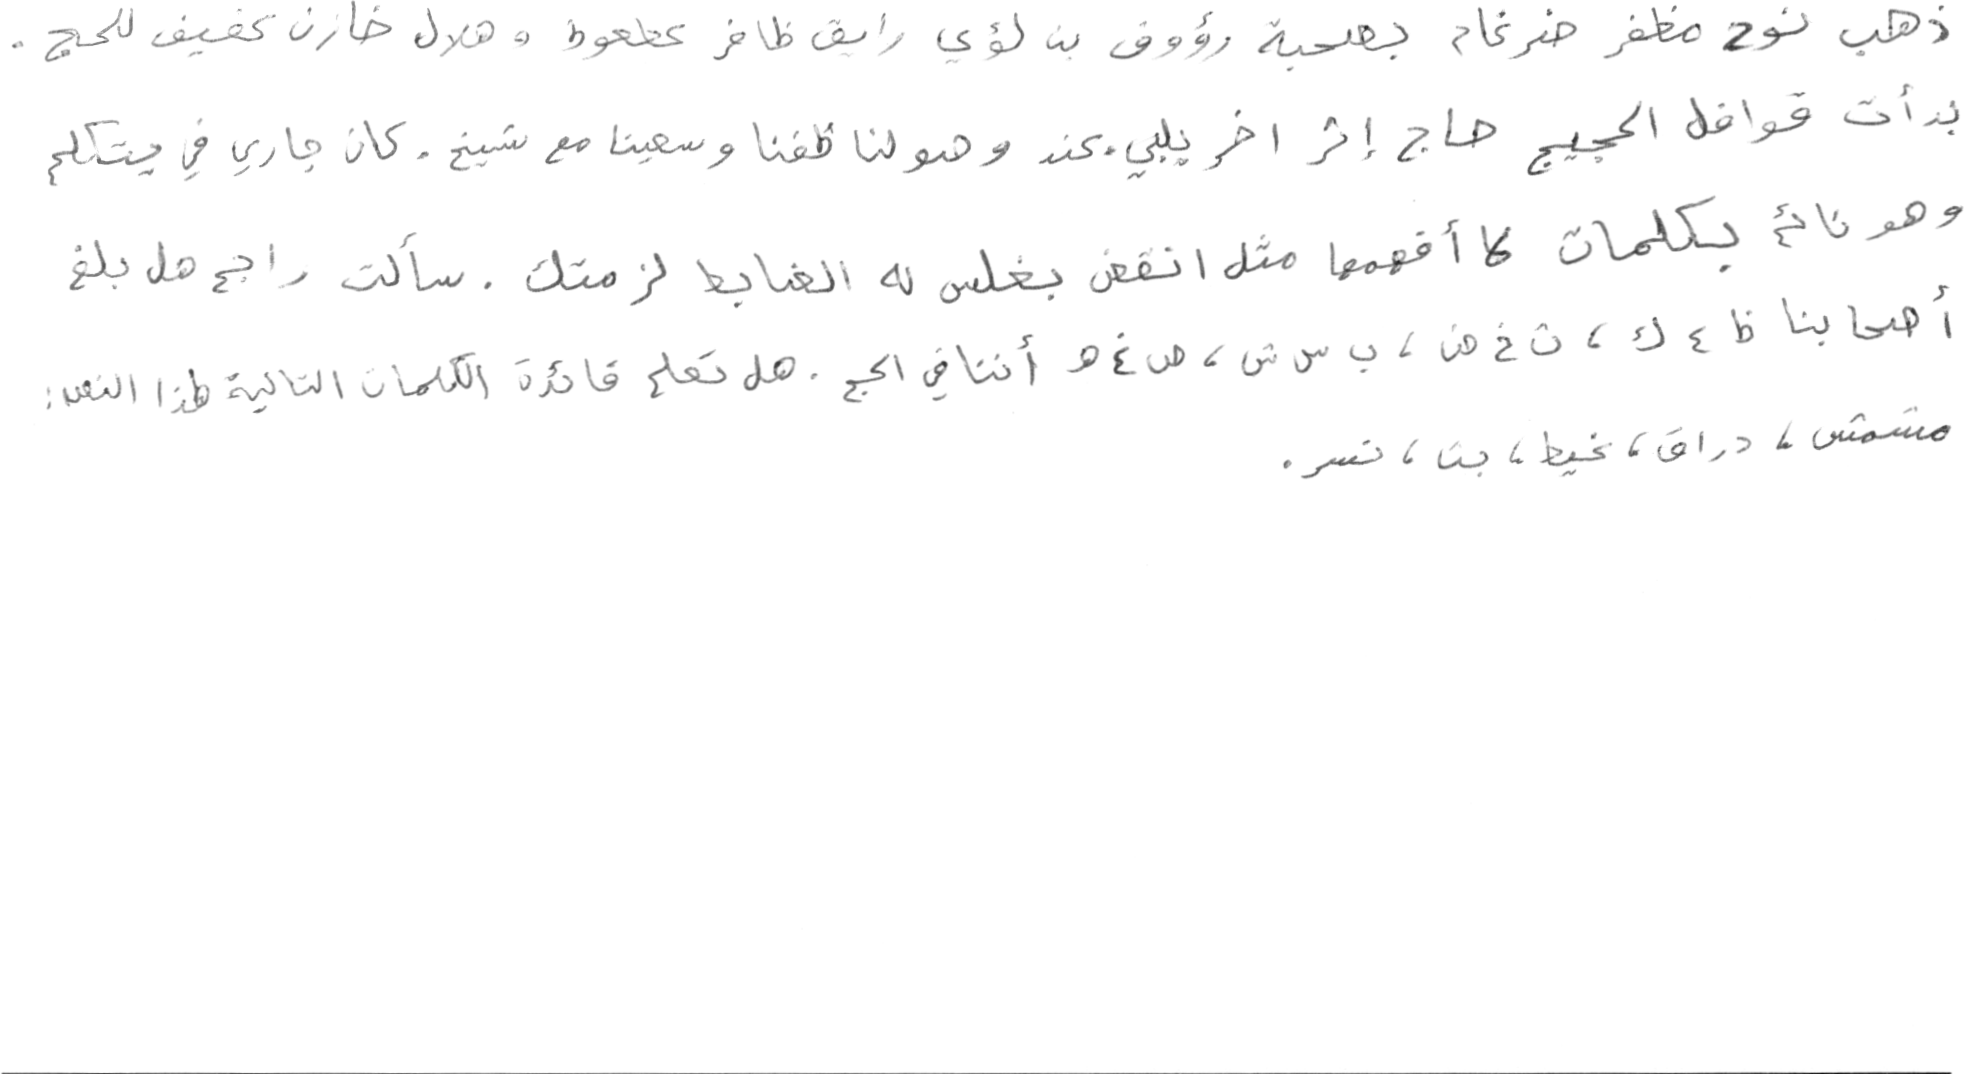 ذهب نوح مظفر ضرغام بصحبة رؤوف بن لؤي رايق ظافر عظعوظ و هلال خازن عفيف للحج .
بدأت قوافل الحجيج حاج إثر اخر يلبي . عند وصولنا طفنا وسعينا مع شيخ . كان جاري في يتكلم
وهو نائم بكلمات لا أفهمها مثل انقض بغلس له الضابط لزمتك . سألت راجح هل بلغ
أصحابنا ظ ء ك ، ث خ ض ، ب س ش ، ص غ ه أننا في الحج . هل تعلم فائدة الكلمات التالية لهذا النص :
مشمش ، دراق ، غيط ، بن ، نسر .